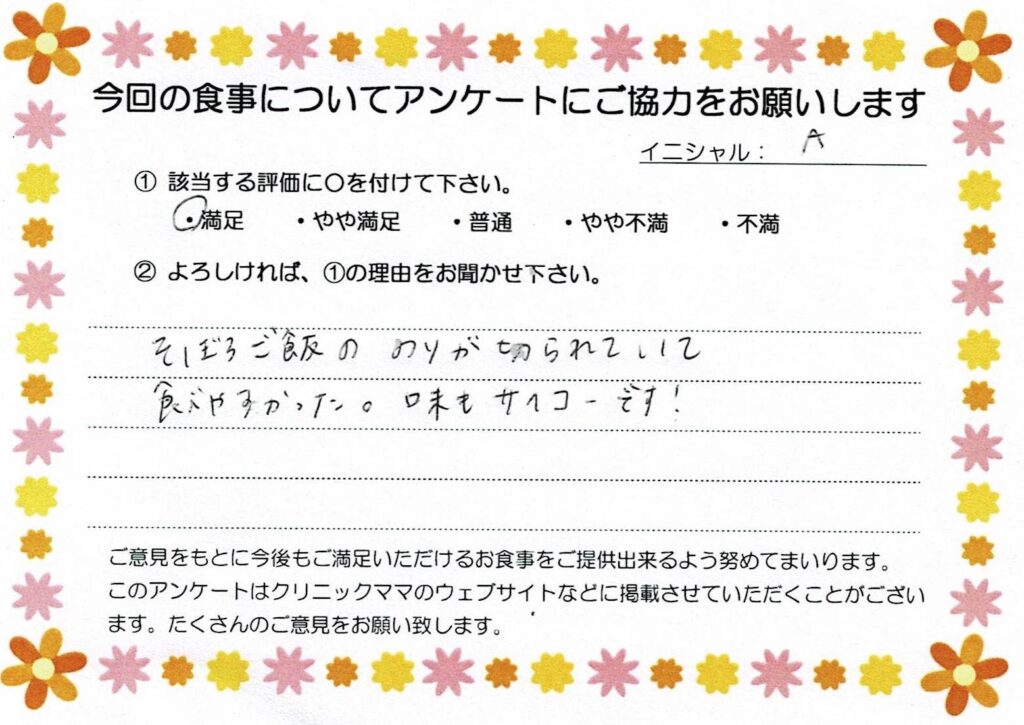 今回の食事についてアンケートにご協力をお願いします
イニシャル： A
① 該当する評価に〇を付けて下さい。
・満足 ・やや満足 ・普通 ・やや不満 ・不満
② よろしければ、①の理由をお聞かせ下さい。
そぼろご飯の のりが切られていて
食べやすかった。味もサイコーです!
ご意見をもとに今後もご満足いただけるお食事をご提供出来るよう努めてまいります。
このアンケートはクリニックママのウェブサイトなどに掲載させていただくことがござい
ます。たくさんのご意見をお願い致します。